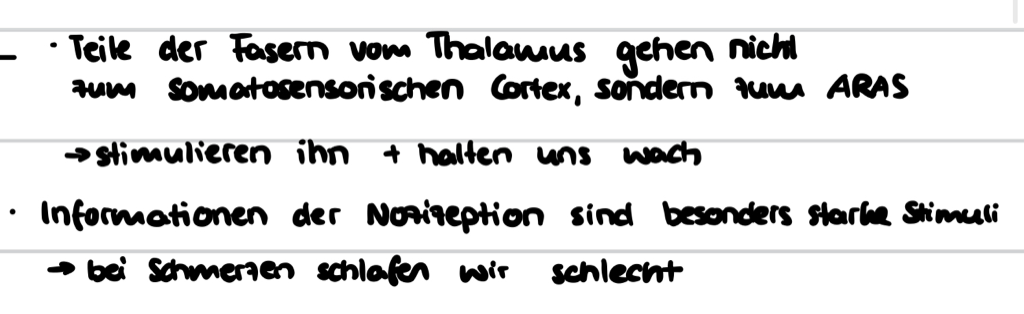 · Teile der Fasern vom Thalamus gehen nicht
zum somatosensorischen Cortex, sondern zum ARAS
→ stimulieren ihn + halten uns wach
· Informationen der Nozizeption sind besonders starke Stimuli
→ bei Schmerzen schlafen wir schlecht